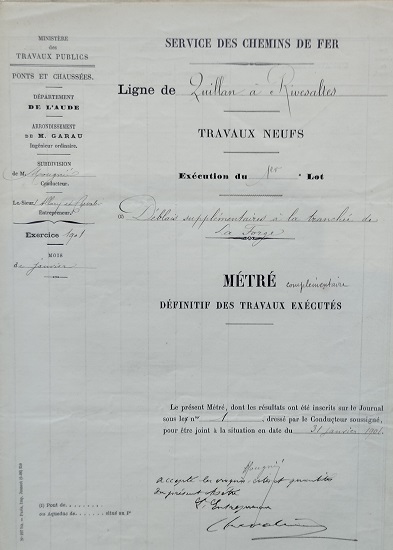 MINISTÈRE
des
TRAVAUX PUBLICS
PONTS ET CHAUSSÉES.
DÉPARTEMENT
DE L'AUDE
ARRONDISSEMENT
DE M. GARAU
Ingénieur ordinaire.
SUBDIVISION
de M.
Conducteur.
Le Sieur
Entrepreneur.
Exercice 1901
MOIS
de Janvier
SERVICE DES CHEMINS DE FER
Ligne de Quillan à Rivesaltes
TRAVAUX NEUFS
Exécution du 1er Lot
(1) Déblais supplémentaires à la tranchée de
La Forge
MÉTRÉ complémentaire
DÉFINITIF DES TRAVAUX EXÉCUTÉS
Le présent Métré, dont les résultats ont été inscrits sur le Journal
sous les nos 1, dressé par le Conducteur soussigné,
pour être joint à la situation en date du 31 janvier 1901.
accepté les croquis, cotes et quantités
du présent métré
L'Entrepreneur
(1) Pont de
ou Aqueduc de situé au Pt